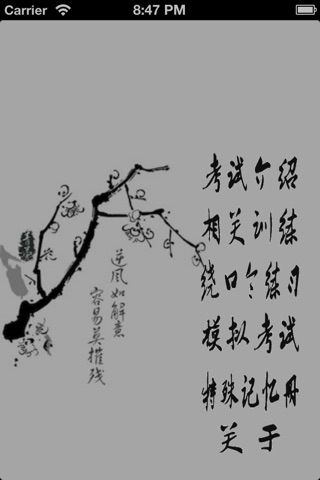 Carrier 8:47 PM
考试介绍
相关训练
绕口令练习
模拟考试
特殊记忆册
关于
逆风如解意
容易莫摧残